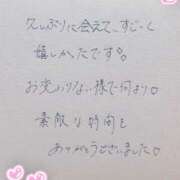 久しぶりに会えて、すごーく
嬉しかったです♡
お変わりない様で何より♡
素敵な時間を
ありがとうございました♡